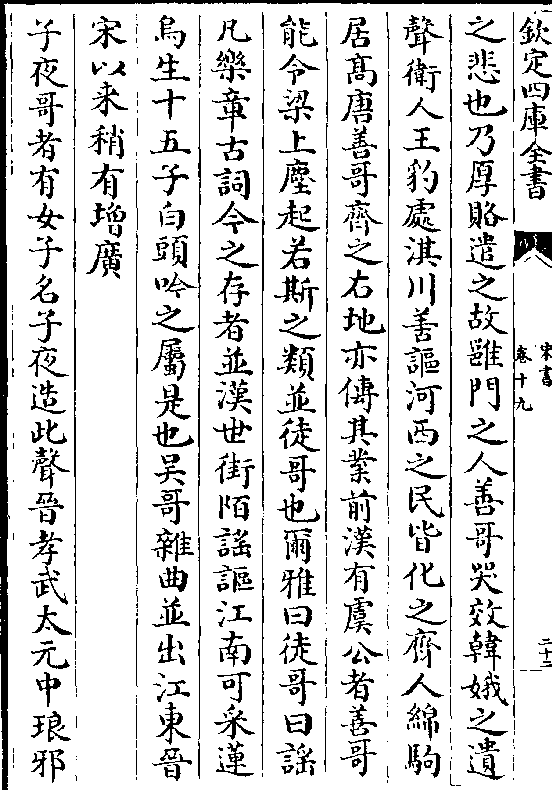 欽定四庫全書
宋書
卷十九
二十二
之悲也乃厚賂遣之故雝門之人善哥哭效韓娥之遺
聲衛人王豹處淇川善謳河西之民皆化之齊人綿駒
居髙唐善哥齊之右地亦傳其業前漢有虞公者善哥
能令梁上塵起若斯之類並徒哥也爾雅曰徒哥曰謡
凡樂章古詞今之存者並漢世街陌謡謳江南可采蓮
烏生十五子白頭吟之屬是也吴哥雜曲並出江東晉
宋以来稍有增廣
子夜哥者有女子名子夜造此聲晉孝武太元中琅邪